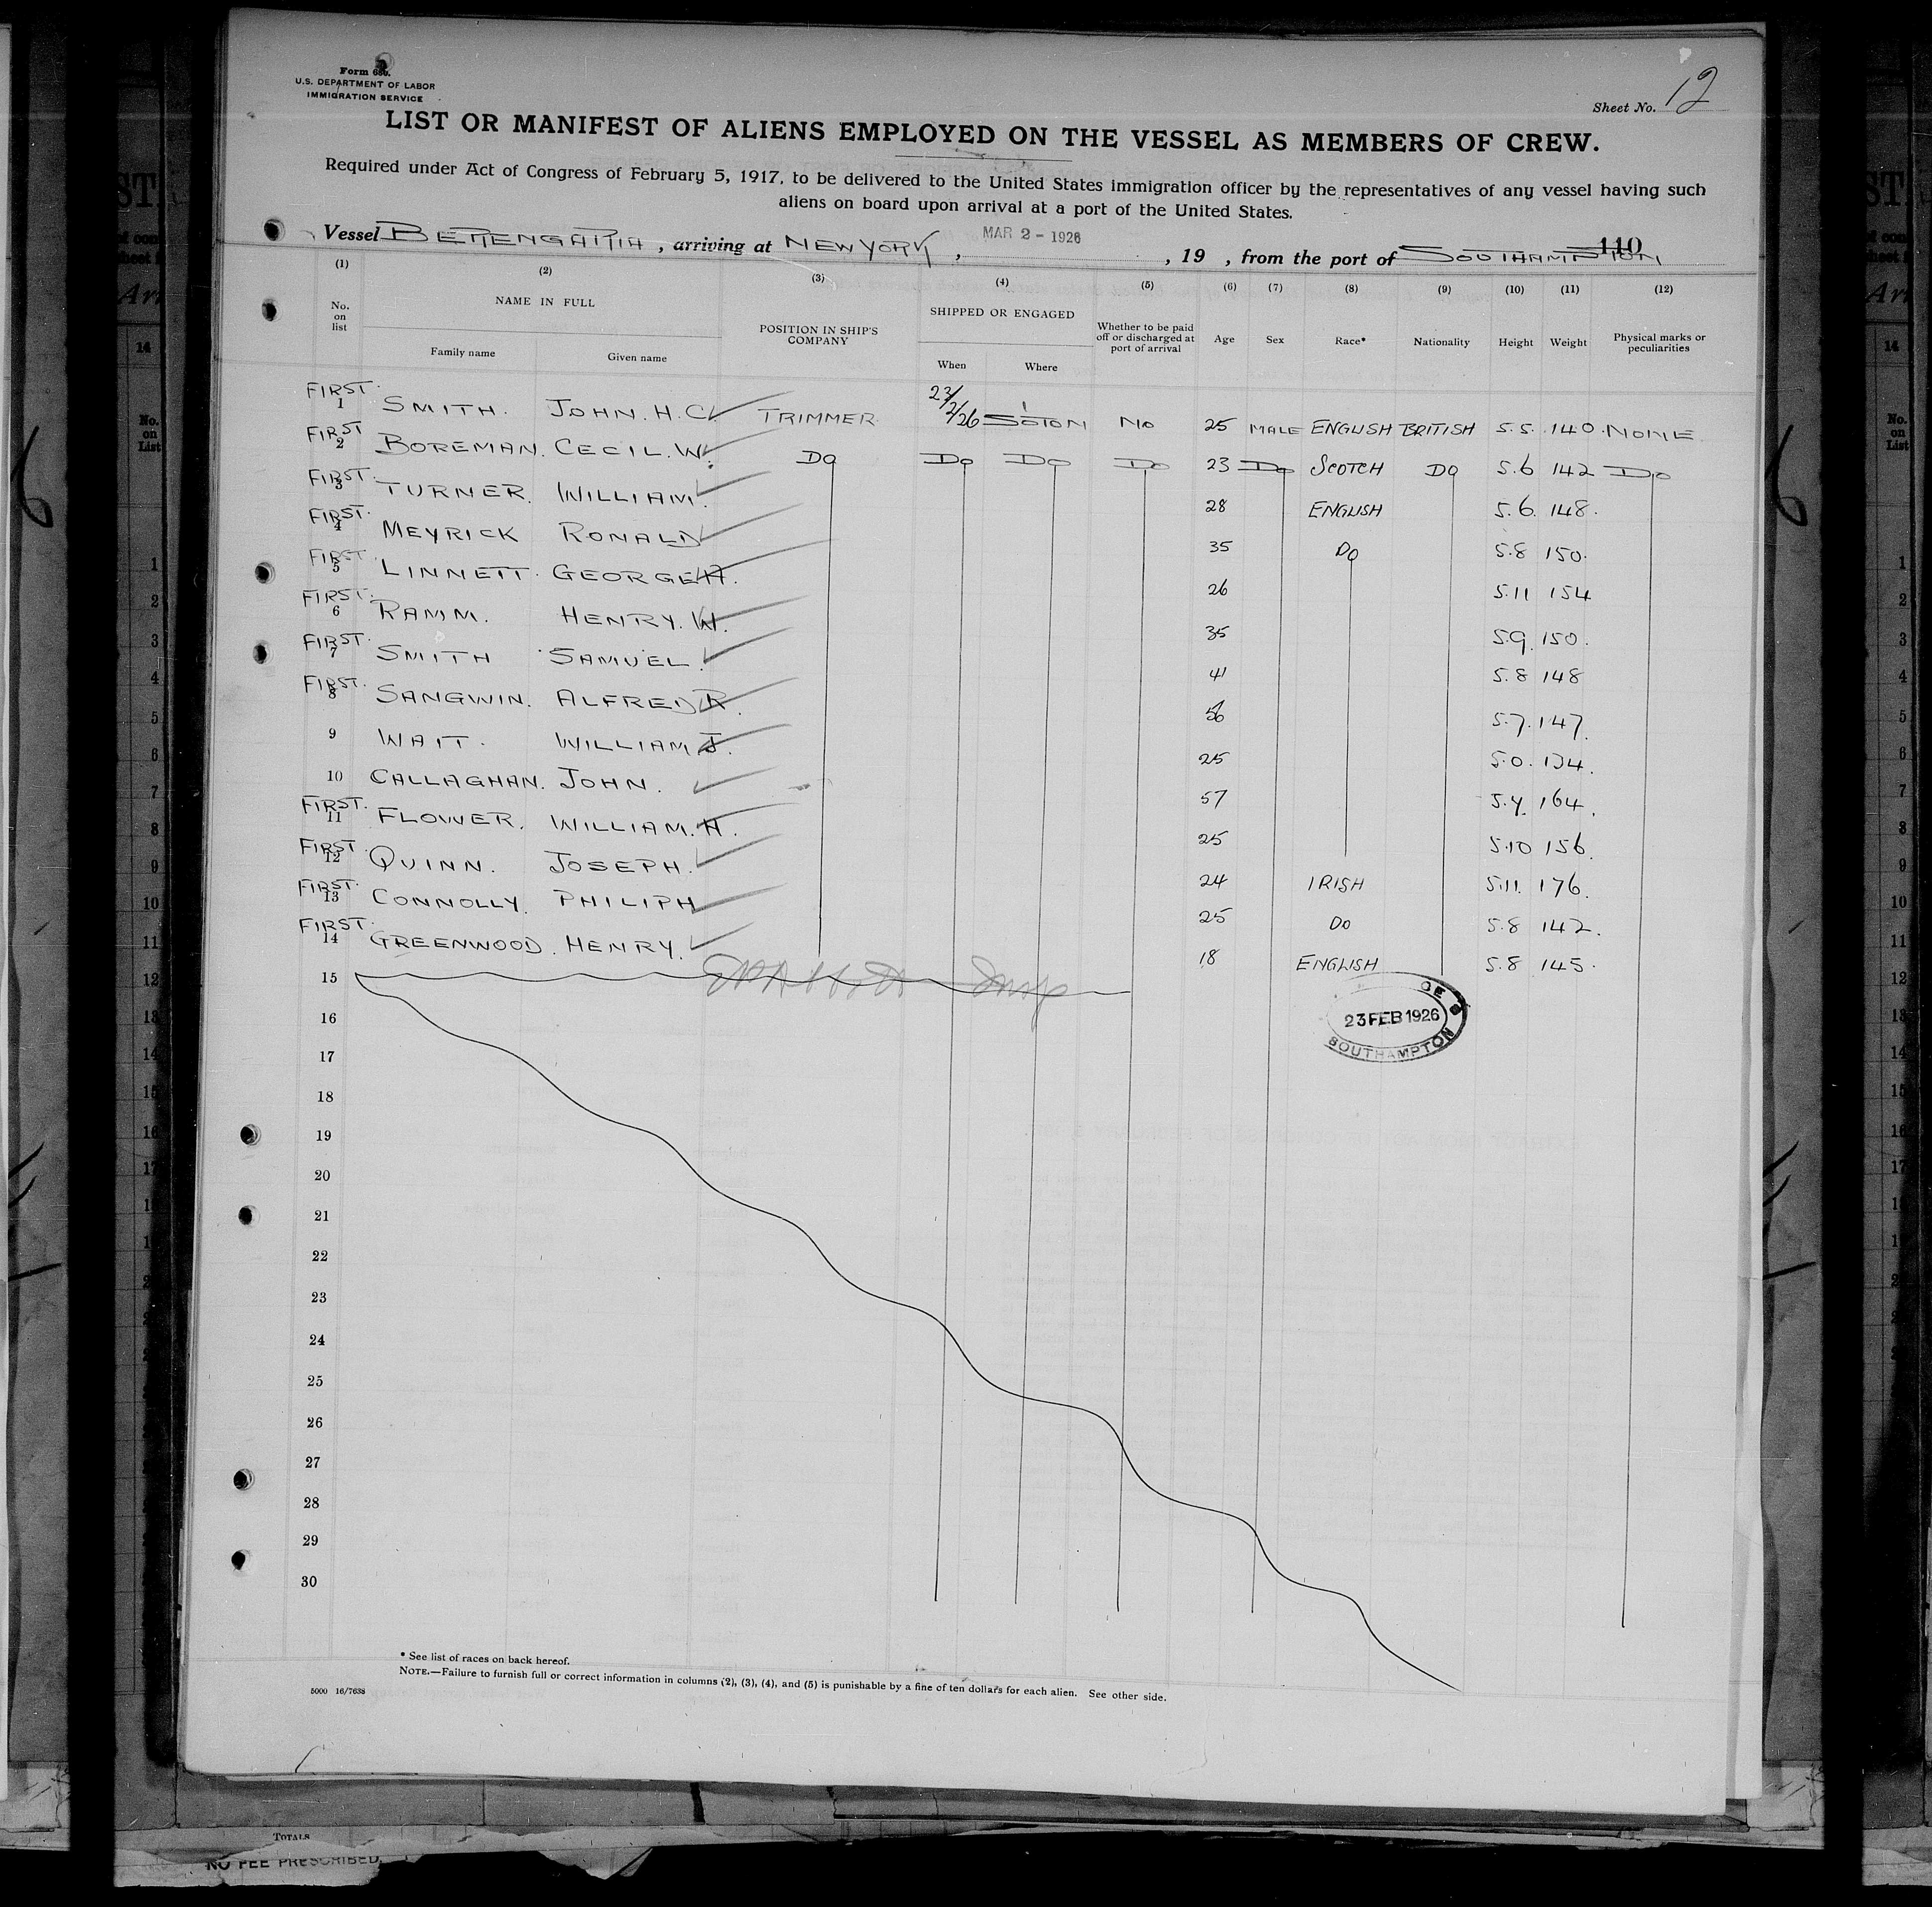 Form 680.
U.S. DEPARTMENT OF LABOR
IMMIGRATION SERVICE
Sheet No. 12
LIST OR MANIFEST OF ALIENS EMPLOYED ON THE VESSEL AS MEMBERS OF CREW.
Required under Act of Congress of February 5, 1917, to be delivered to the United States immigration officer by the representatives of any vessel having such
aliens on board upon arrival at a port of the United States.
Vessel BERENGARIA, arriving at NEW YORK, MAR 2 - 1926, 19 , from the port of SOUTHAMPTON 110
(1) (2) (3) (4) (5) (6) (7) (8) (9) (10) (11) (12)
No. on list NAME IN FULL Family name Given name POSITION IN SHIP'S COMPANY SHIPPED OR ENGAGED When Where Whether to be paid off or discharged at port of arrival Age Sex Race* Nationality Height Weight Physical marks or peculiarities
FIRST 1 SMITH. JOHN. H. C. TRIMMER 23/2/26 S'OTON NO 25 MALE ENGLISH BRITISH 5.5. 140. NONE
FIRST 2 BOREMAN. CECIL. W. DO DO DO DO 23 DO SCOTCH DO 5.6 142 DO
FIRST 3 TURNER. WILLIAM. 28 ENGLISH 5.6. 148.
FIRST. 4 MEYRICK RONALD 35 DO 5.8 150.
FIRST. 5 LINNETT. GEORGE H. 26 5.11 154
FIRST. 6 RAMM. HENRY. W. 35 5.9. 150.
FIRST. 7 SMITH SAMUEL. 41 5.8 148
FIRST. 8 SANGWIN. ALFRED R. 5.7. 147.
9 WAIT. WILLIAM J. 25 5.0. 134.
10 CALLAGHAN. JOHN. 57 5.4. 164.
FIRST. 11 FLOWER. WILLIAM. H. 25 5.10 156.
FIRST. 12 QUINN. JOSEPH. 24 IRISH 5.11. 176.
FIRST. 13 CONNOLLY. PHILIP H 25 DO 5.8 142.
FIRST. 14 GREENWOOD. HENRY. 18 ENGLISH 5.8 145.
15
16
23 FEB 1926
SOUTHAMPTON
17
18
19
20
21
22
23
24
25
26
27
28
29
30
* See list of races on back hereof.
NOTE.—Failure to furnish full or correct information in columns (2), (3), (4), and (5) is punishable by a fine of ten dollars for each alien. See other side.
5000 16/7638
TOTALS
NO FEE PRESCRIBED.